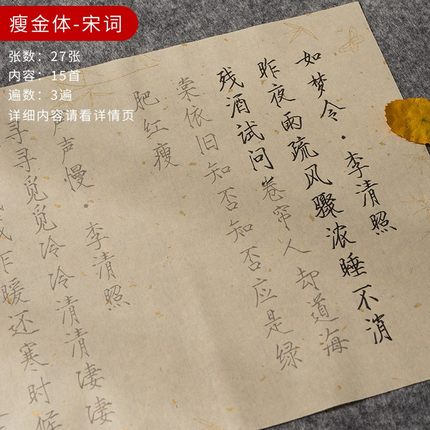 瘦金体-宋词
张数：27张
内容：15首
遍数：3遍
详细内容请看详情页
如梦令·李清照
昨夜雨疏风骤浓睡不消
残酒试问卷帘人却道海
棠依旧知否知否应是绿
肥红瘦
声慢·李清照
寻寻觅觅冷冷清清凄凄
乍暖还寒时候